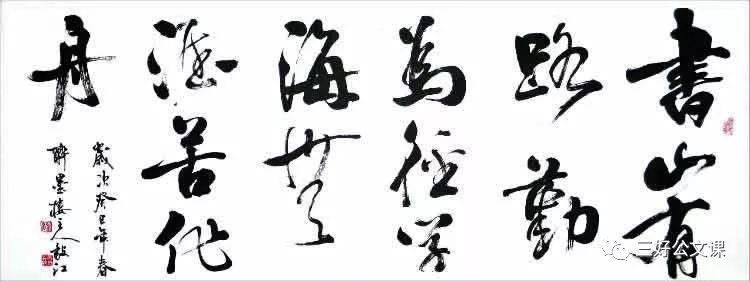 書山有
路勤
為徑學
海無
涯苦作
舟
歲次癸巳年春
墨樓主人
三好公文课